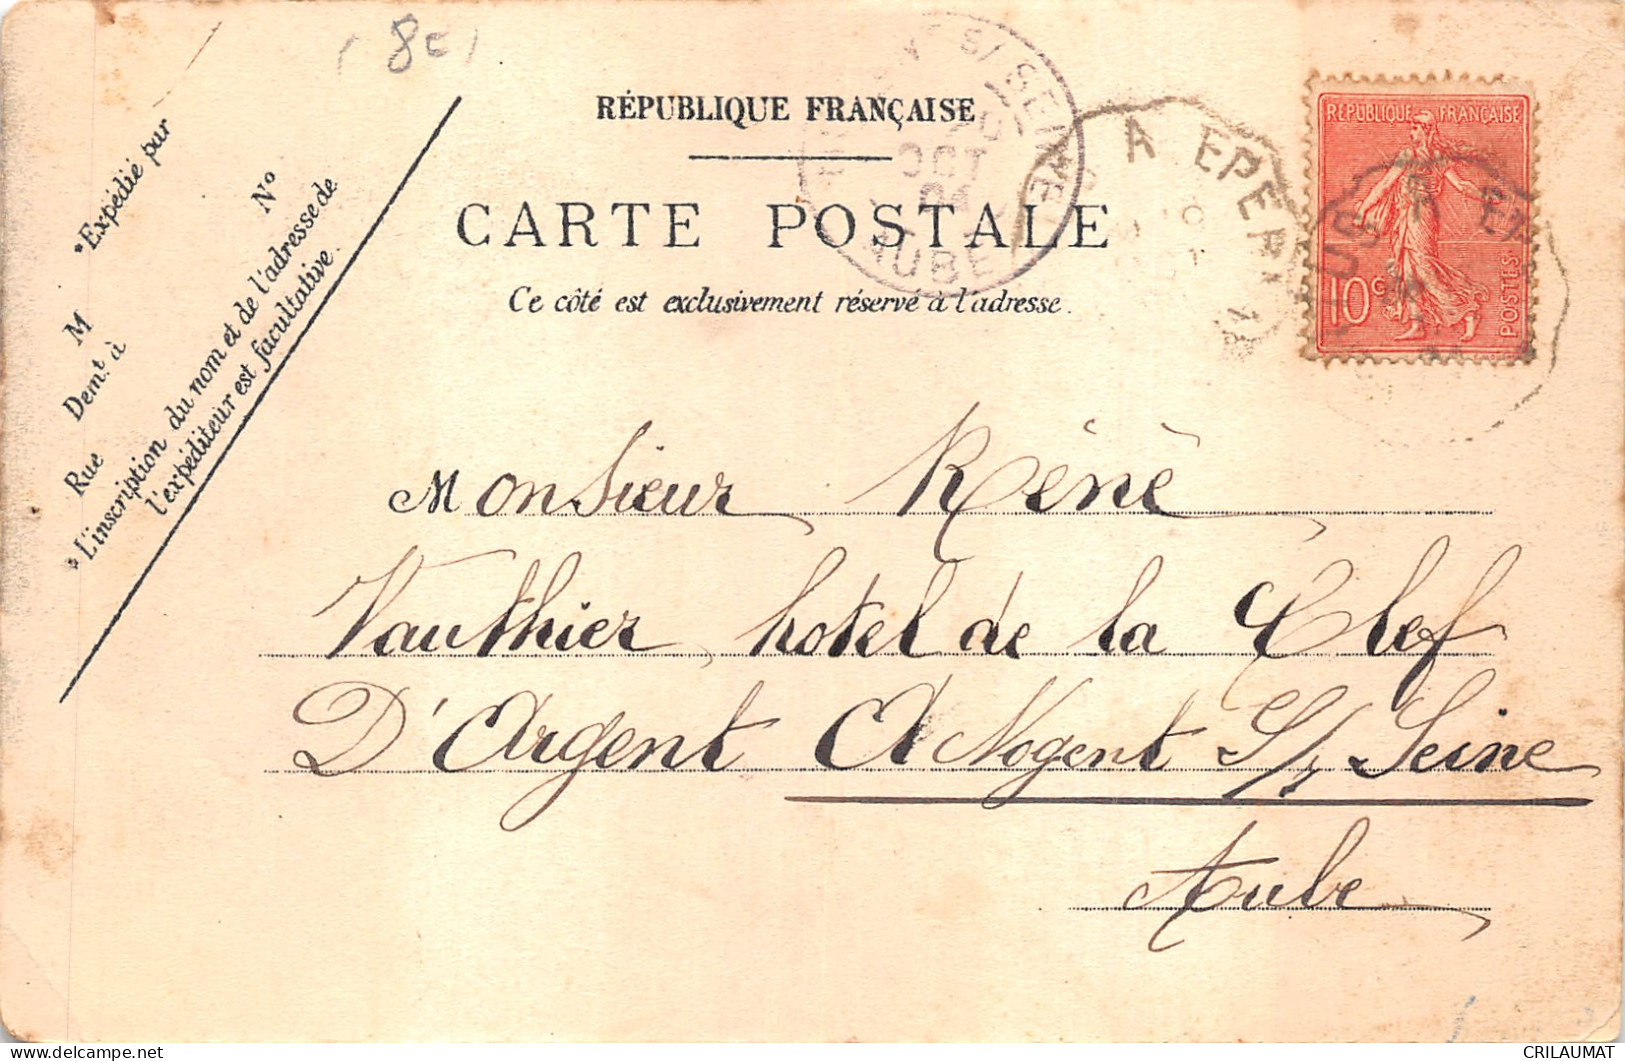 8c
RÉPUBLIQUE FRANÇAISE
CARTE POSTALE
Ce côté est exclusivement réservé à l'adresse.
*Expédié par
M
N°
Demt. à
Rue
*L'inscription du nom et de l'adresse de
l'expéditeur est facultative.
S/SEINE
OCT
04
AUBE
A EPER
RÉPUBLIQUE FRANÇAISE
10c
POSTES
Monsieur Réné
Vauthier, hotel de la Clef
D'Argent A Nogent S/s Seine
Aube
CRILAUMAT